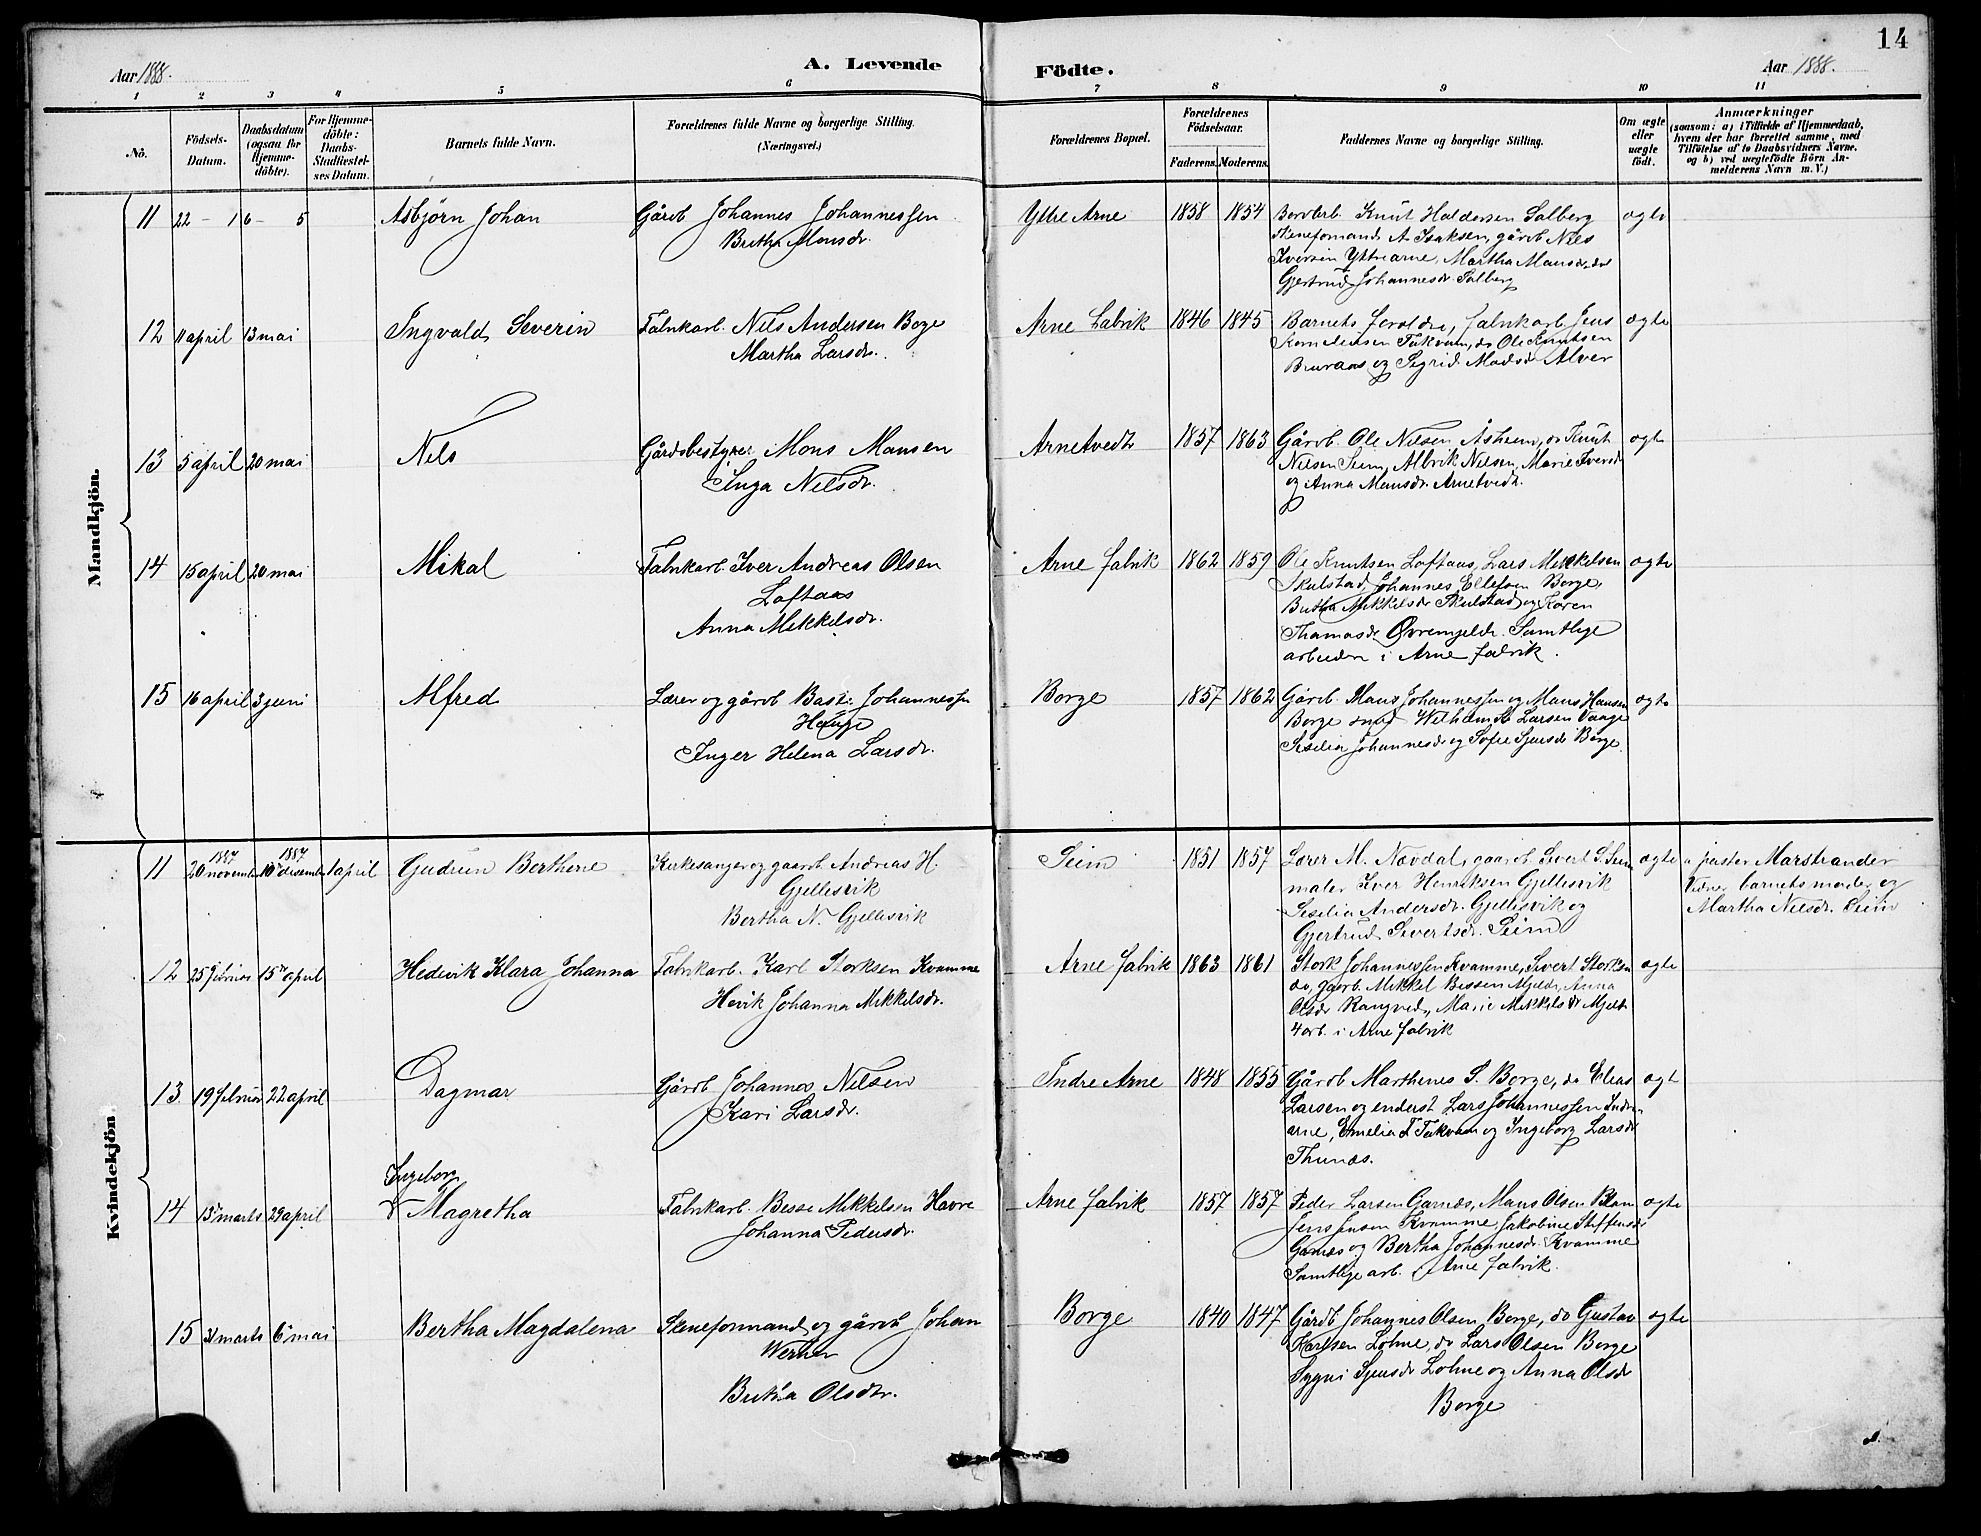 14
Aar 1888. A. Levende Födte. Aar 1888.
1 2 3 4 5 6 7 8 9 10 11
No. Födsels-Datum. Daabsdatum (ogsaa for Hjemme-döbte). For Hjemme-döbte: Daabs-Stadfæstel-ses Datum. Barnets fulde Navn. Forældrenes fulde Navne og borgerlige Stilling. (Næringsvei.) Forældrenes Bopæl. Forældrenes Födselsaar. Faderens. Moderens. Faddernes Navne og borgerlige Stilling. Om ægte eller uægte födt. Anmærkninger (saasom: a) i Tilfælde af Hjemmedaab, hvem der har forrettet samme, med Tilföielse af to Daabsvidners Navne, og b) ved uægtefödte Börn An-melderens Navn m. V.)
Mandkjön.
11 22 – 1 6 – 5 Asbjörn Johan Gårdb Johannes Johannessen Ytre Arne 1858 1854 Knut Haldorsen Solberg ægte
Britha Monsdr. A Isaksen, gårdb Nils
Iversen Ytrearne, Martha Mansdr
Gjertrud Johannesdr Solberg
12 11 april 13 mai Ingvald Severin Fabrikarb. Nils Andersen Borge Arne Fabrik 1846 1845 Barnets foreldre, fabrikarb Jens ægte
Martha Larsdr. Kornelensen Takvam, do Ole Knutsen
og Sigrid Madsdr Alver
13 5 april 20 mai Nils Gårdsbestyrer Mons Monsen Arnetvedt 1857 1863 Gårdb. Ole Nilsen Åsheim, do Knut ægte
Inga Nilsdr. Nilsen Seim, Albrik Nilsen, Marie Iversdr
og Anna Mansdr Arnetvedt.
14 15 april 20 mai Mikal Fabrikarb. Iver Andreas Olsen Arne fabrik 1862 1859 Ole Knutsen Loftaas, Lars Mikkelsen ægte
Loftaas Skulstad, Johannes Ellefsen Borge,
Anna Mikkelsdr. Britha Mikkelsdr Skulstad og Karen
Thomasdr Øvremjelde. Samtlige
arbeider i Arne fabrik.
15 16 april 3 juni Alfred Lærer og gårdb Bast. Johannessen Borge 1857 1862 Gårdb. Mans Johannessen og Mans Hansen ægte
Hauge Borge smed Larsen Vaage
Inger Helena Larsdr. Seselia Johannesdr og Sofie Sjursdr Borge.
Kvindekjön.
11 20 november 1887 10 desember 1887 1 april Gudrun Berthine Kirkesanger og gaardb Andreas H. Seim 1851 1857 Lærer M. Nævdal, gaardb Sivert S. Seim ægte a pastor Marstrander
Gjellesvik maler Iver Henriksen Gjellesvik Vidner barnets moder og
Bertha N. Gjellesvik Seselia Andersdr. Gjellesvik og Martha Nilsdr. Seim
Gjertrud Sivertsdr. Seim
12 25 februar 15 april Hedevik Klara Johanna Fabrikarb. Karl Storksen Kvamme Arne fabrik 1863 1861 Stork Johannessen Kvamme, Sivert Storksen ægte
Hevik Johanna Mikkelsdr. do, gaardb. Mikkel Bessen Mjelde, Anna
Olsdr Rangved, Marie Mikkelsdr Mjelde
4 arb. i Arne fabrik
13 19 februar 22 april Dagmar Gårdb Johannes Nilsen Indre Arne 1848 1855 Gårdb Marthenes S. Borge, do Elias ægte
Kari Larsdr. Larsen og enderst Lars Johannessen Indre
arne, Emelia T Takvam og Ingeborg Larsdr
Thunes.
14 13 marts 29 april Ingeborg Magretha Fabrikarb. Besse Mikkelsen Havre Arne fabrik 1857 1857 Peder Larsen Garnæs, Mans Olsen ægte
Johanna Pedersdr. Jens Jensen Kvamme, Jakobine Steffensdr
Garnæs og Bertha Johannesdr. Kvamme
Samtlige arb. i Arne fabrik.
15 31 marts 6 mai Bertha Magdalena Skeneformand og gårdb Johan Borge 1840 1847 Gårdb Johannes Olsen Borge, do Gustav ægte
Werner Karlsen Lohne, do Lars Olsen Borge
Britha Olsdtr. Sygni Sjursdr Lohne og Anna Olsdr
Borge